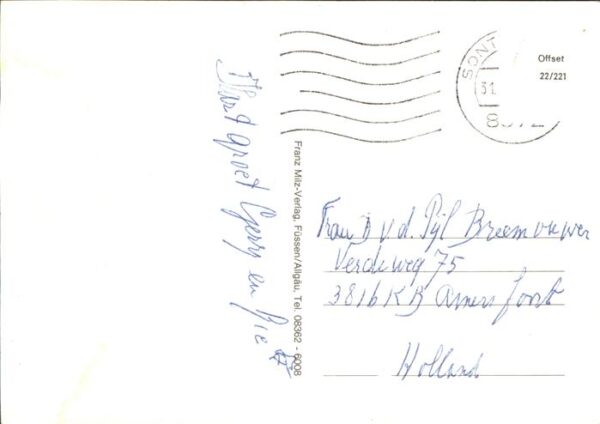 Hart groet Gerry en Piet
Franz Milz-Verlag, Füssen/Allgäu, Tel. 08362 - 6008
SONT
31.
Offset
22/221
Frau B v.d. Pijl
75
3816 KB Amersfoort
Holland